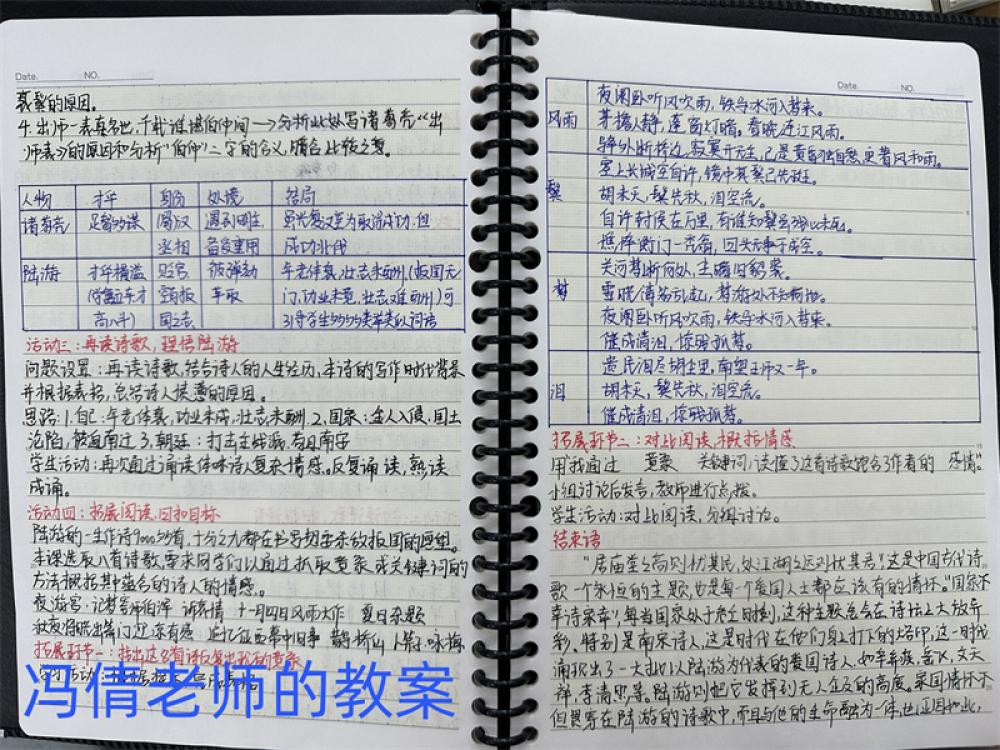 Date. NO.
衰鬓的原因。
4.出师一表真名世,千载谁堪伯仲间——>分析此处写诸葛亮《出
师表》的原因和分析"伯仲"二字的含义,暗含比较之意。
人物 才华 身份 处境 结局
诸葛亮 足智多谋 蜀汉 遇到明主 虽光复汉室为取得成功,但
丞相 备受重用 成功北伐
陆游 才华横溢 贬官 被弹劾 年老体衰,壮志未酬(报国无
罢职 门,功业未竟,壮志难酬)可
高八斗) 引导学生
活动三:再读诗歌,理悟陆游
问题设置:再读诗歌,结合诗人的人生经历,本诗的写作时代背景
并根据表格,总结诗人悲愤的原因。
思路:1.自己:年老体衰,功业未成,壮志未酬 2.国家:金人入侵,国土
沦陷,被迫南过 3.朝廷:打击主战派,
学生活动:再次通过诵读体味诗人复杂情感。反复诵读,熟读
成诵。
活动四:拓展阅读,回扣目标
陆游的一生作诗9000多首,十分之九都在书写
本课选取八首诗歌,要求同学们以通过抓取意象或关键词的
方法概括其中蕴含的诗人的情感。
夜游宫·记梦寄师伯浑 诉衷情 十一月四日风雨大作 夏日杂题
秋夜将晓出篱门迎凉有感 鹊桥仙 卜算子·咏梅
拓展环节一:找出这8首诗反复出现的意象
学生活动:
冯倩老师的教案
Date. NO.
夜阑卧听风吹雨,铁马冰河入梦来。
风雨 茅檐人静,蓬窗灯暗。春晚连江风雨。
驿外断桥边,寂寞开无主,已是黄昏独自愁,更着风和雨。
塞上长城空自许,镜中衰鬓已先斑。
鬓 胡未灭,鬓先秋,泪空流。
自许封侯在万里,有谁知鬓虽残心未死。
憔悴衡门一秃翁,回头无事不成空。
关河梦断何处,尘暗旧貂裘。
梦 雪晓清笳乱起,梦游处不知何地。
夜阑卧听风吹雨,铁马冰河入梦来。
催成清泪,惊残孤梦。
遗民泪尽胡尘里,南望王师又一年。
泪 胡未灭,鬓先秋,泪空流。
催成清泪,惊残孤梦。
拓展环节二:对比阅读,概括情感
用"我通过 意象 关键词,读懂了这首诗歌饱含了作者的 感情"。
小组讨论后发言,教师进行点拨。
学生活动:对比阅读,分组讨论。
结束语
"居庙堂之高则忧其民,处江湖之远则忧其君",这是中国古代诗
歌一个永恒的主题,也是每一个爱国人士都应该有的情怀。"国家不
幸诗家幸",每当国家处于危难时刻,这种主题总会在诗坛上大放异
彩。特别是南宋诗人,这是时代在他们身上打下的烙印,这一时代
涌现出了一大批以陆游为代表的爱国诗人,如辛弃疾、岳飞、文天
祥、李清照等。陆游则把它发挥到无人企及的高度。家国情怀不
但贯穿在陆游的诗歌中,而且与他的生命融为一体,也正因如此,